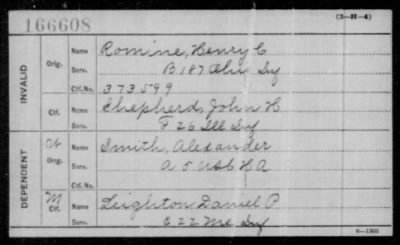 166608
(3—H—4)
INVALID
Orig.
Name Romine, Henry C
Serv. B 187 Ohio Inf
Ctf. No. 373599
Ctf.
Name Shepherd, John H
Serv. F 26 Ill Inf
DEPENDENT
W
Orig.
Name Smith, Alexander
Serv. A 5 US H A
Ctf. No.
M
Ctf.
Name Leighton Daniel P
Serv. C 22 Me Inf